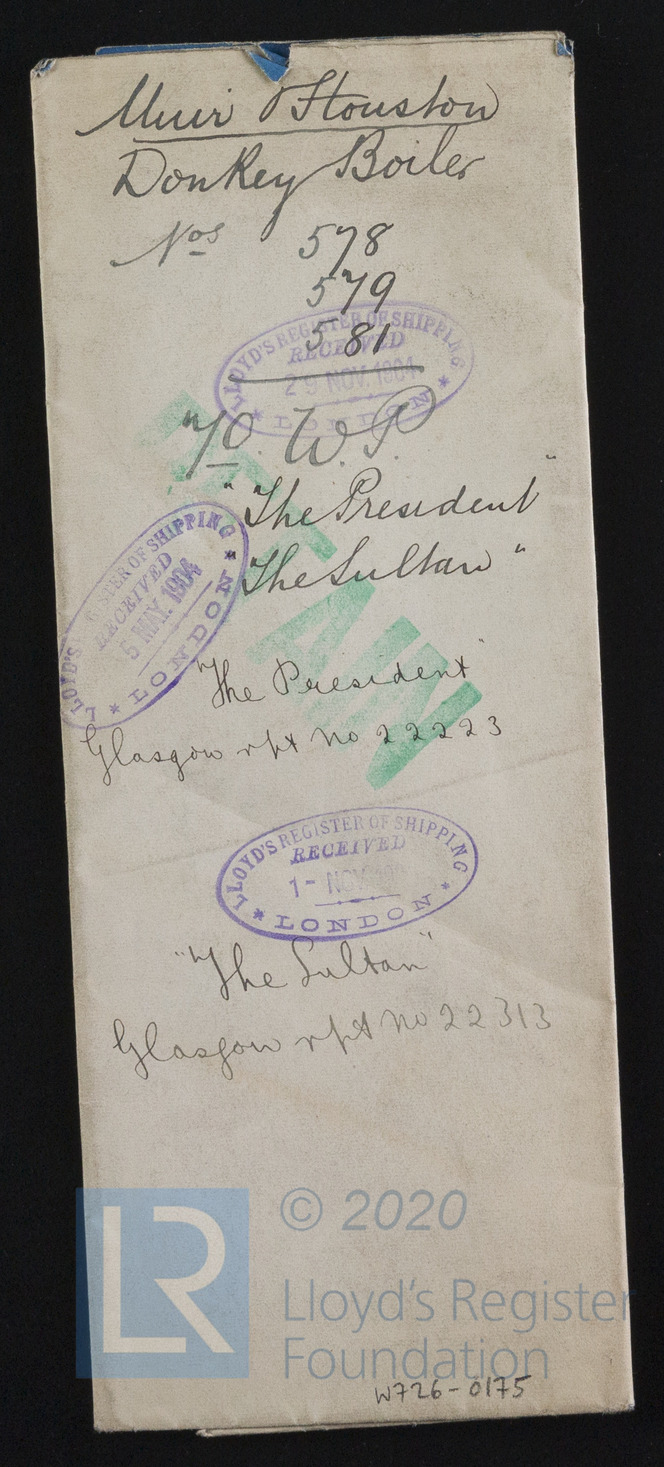 Muir & Houston
Donkey Boiler
Nos 578
579
581
LLOYD'S REGISTER OF SHIPPING
RECEIVED
29 NOV. 1904
LONDON
70. W.P.
RETAIN
"The President"
"The Sultan"
LLOYD'S REGISTER OF SHIPPING
RECEIVED
5 MAY. 1904
LONDON
"The President"
Glasgow rpt No 22223
LLOYD'S REGISTER OF SHIPPING
RECEIVED
1- NOV.
LONDON
"The Sultan"
Glasgow rpt No 22313
LR
© 2020
Lloyd's Register
Foundation
W726-0175